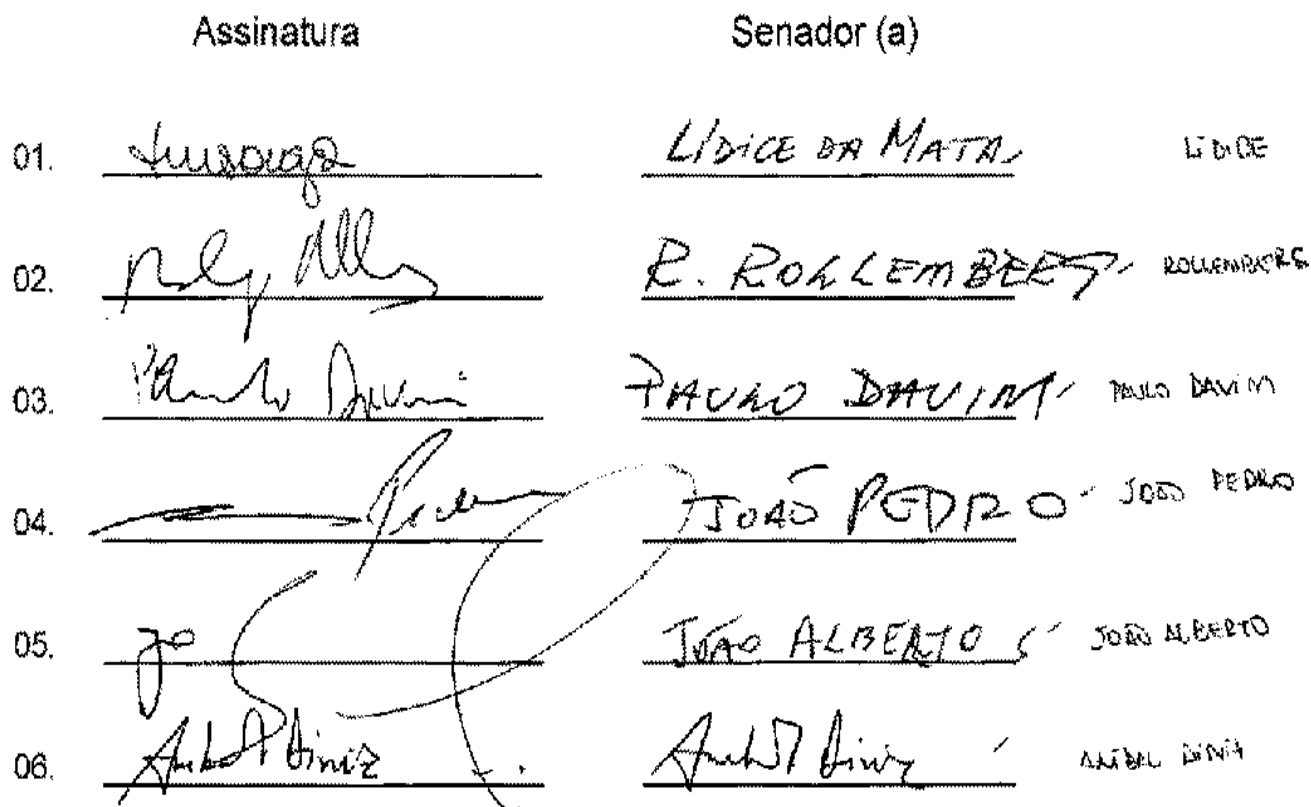 Assinatura Senador (a)
01. LÍDICE DA MATA LÍDICE
02. R. ROLLEMBERG ROLLEMBERG
03. Paulo Davim PAULO DAVIM PAULO DAVIM
04. JOÃO PEDRO JOÃO PEDRO
05. JOÃO ALBERTO JOÃO ALBERTO
06. Anibal Diniz Anibal Diniz ANIBAL DINIZ